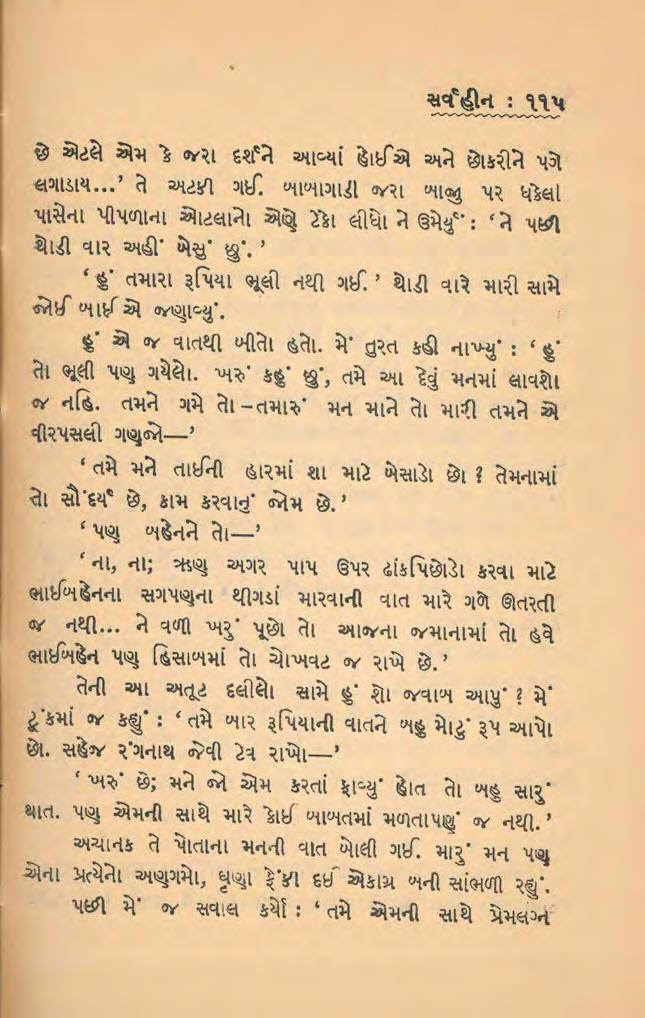 સર્વહીન : ૧૧૫
છે એટલે એમ કે જરા દર્શને આવ્યાં હોઈએ અને છોકરીને પગે
લગાડાય...’ તે અટકી ગઈ. બાબાગાડી જરા બાજુ પર ધકેલી
પાસેના પીપળાના ઓટલાનો એણે ટેકો લીધો ને ઉમેર્યું : ‘ને પછી
થોડી વાર અહીં બેસું છું.’
‘હું તમારા રૂપિયા ભૂલી નથી ગઈ.’ થોડી વારે મારી સામે
જોઈ બાઈ એ જણાવ્યું.
હું એ જ વાતથી બીતો હતો. મેં તુરત કહી નાખ્યું : ‘હું
તો ભૂલી પણ ગયેલો. ખરું કહું છું, તમે આ દેવું મનમાં લાવશો
જ નહિ. તમને ગમે તો – તમારું મન માને તો મારી તમને એ
વીરપસલી ગણજો—’
‘તમે મને તાઈની હારમાં શા માટે બેસાડો છો ? તેમનામાં
તો સૌંદર્ય છે, કામ કરવાનું જોમ છે.’
‘પણ બહેનને તો—’
‘ના, ના; ઋણ અગર પાપ ઉપર ઢાંકપિછોડો કરવા માટે
ભાઈબહેનના સગપણના થીગડાં મારવાની વાત મારે ગળે ઊતરતી
જ નથી... ને વળી ખરું પૂછો તો આજના જમાનામાં તો હવે
ભાઈબહેન પણ હિસાબમાં તો ચોખવટ જ રાખે છે.’
તેની આ અતૂટ દલીલો સામે હું શો જવાબ આપું ? મેં
ટૂંકમાં જ કહ્યું : ‘તમે બાર રૂપિયાની વાતને બહુ મોટું રૂપ આપો
છો. સહેજ રંગનાથ જેવી ટેવ રાખો—’
‘ખરું છે; મને જો એમ કરતાં ફાવ્યું હોત તો બહુ સારું
થાત. પણ એમની સાથે મારે કોઈ બાબતમાં મળતાપણું જ નથી.’
અચાનક તે પોતાના મનની વાત બોલી ગઈ. મારું મન પણ
એના પ્રત્યેનો અણગમો, ઘૃણા ફેંકી દઈ એકાગ્ર બની સાંભળી રહ્યું.
પછી મેં જ સવાલ કર્યો : ‘તમે એમની સાથે પ્રેમલગ્ન